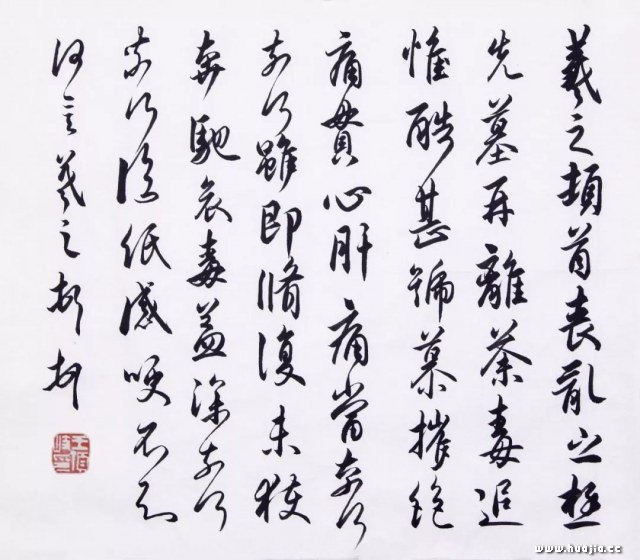 羲之頓首喪亂之極
先墓再離荼毒追
惟酷甚號慕摧絕
痛貫心肝痛當奈何
奈何雖即脩復未獲
奔馳哀毒益深奈何
奈何臨紙感哽不知
何言羲之頓首頓首
www.huajia.cc